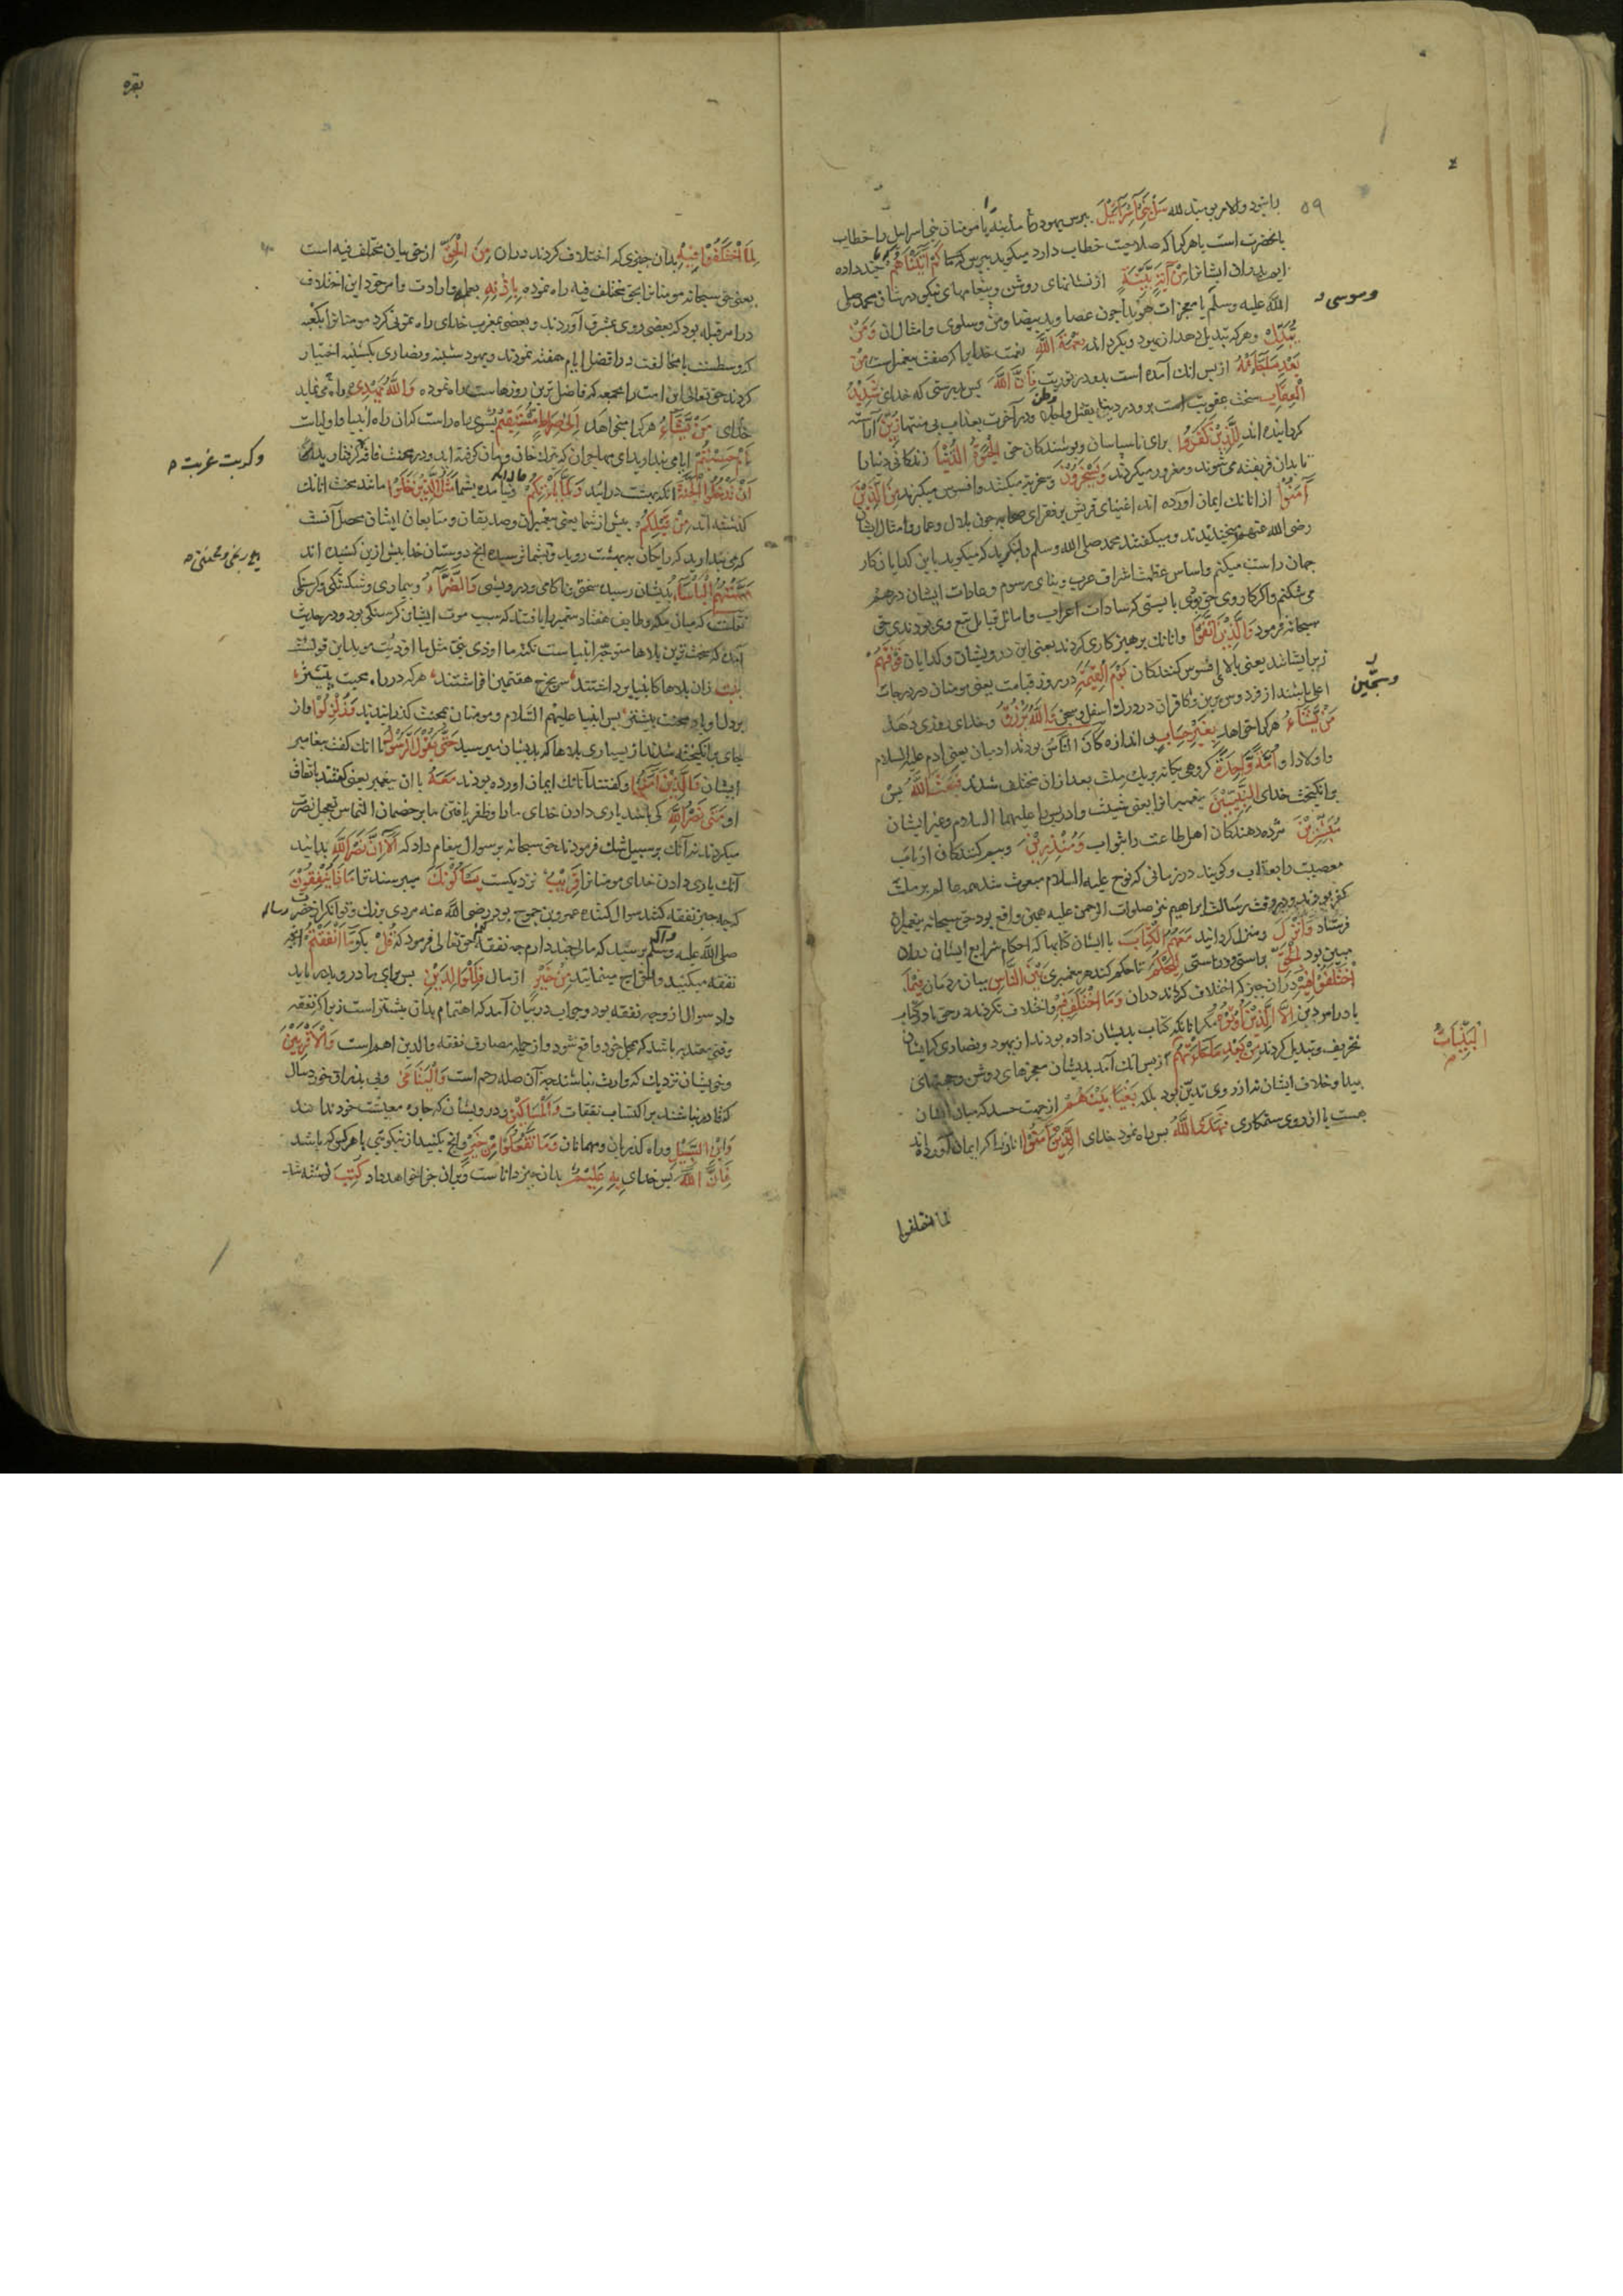 ۵۹
سَلْ بَنِي إِسْرَائِيلَ بپرس
بانحضرت است یا هرکرا که صلاحیت خطاب دارد میکوید بپرس که ما كَمْ آتَيْنَاهُمْ چند داده
ایشانرا مِنْ آيَةٍ بَيِّنَةٍ از نشانهای روشن و پیغامهای نیکو در شان محمد صلی
الله علیه وسلم یا معجزات هویدا چون عصا وید بیضا ومن وسلوی وامثال ان وَمَنْ
يُبَدِّلْ وهرکه تبدیل دهد نِعْمَةَ اللَّهِ نعمت خدایرا مِنْ
بَعْدِ مَا جَاءَتْهُ از پس انك آمده است بدو در توریت فَإِنَّ اللَّهَ پس بدرستی که خدای شَدِيدُ
الْعِقَابِ سخت عقوبت است برو در دنیا بقتل ودر آخرت بعذاب بی منتها زُيِّنَ آراسته
کردانیده اند لِلَّذِينَ كَفَرُوا برای ناسپاسان وپوشندکان حق الْحَيَوةُ الدُّنْيَا زندکانی دنیا را
تا بدان فریفته می شوند ومغرور میکردند وَيَسْخَرُونَ وسخریه میکنند وافسوس میکنند مِنَ الَّذِينَ
آمَنُوا از انانك ایمان آورده اند اغنیای قریش بر فقرای صحابه چون بلال وعمار وامثال ایشان
رضی الله عنهم میخندیدند ومیکفتند محمد صلی الله وسلم را بنکرید که میکوید باین کدایان کار
جهان راست میکنم واساس عظمت اشراف عرب وبنای رسوم وعادات ایشان درهم
می شکنم واکر کار وی حق بودی بایستی که سادات اعراب واماثل قبایل تبع وی بودندی حق
سبحانه فرمود وَالَّذِينَ اتَّقَوْا وانانك پرهیزکاری کردند یعنی این درویشان وکدایان فَوْقَهُمْ
زبر ایشانند یعنی بالای افسوس کنندکان يَوْمَ الْقِيَمَةِ در روز قیامت یعنی مومنان در درجات
اعلی باشند از فردوس برین وکافران در درك اسفل وَاللَّهُ يَرْزُقُ وخدای روزی دهد
مَنْ يَشَاءُ هرکرا خواهد بِغَيْرِ حِسَابٍ بی اندازه كَانَ النَّاسُ بودند ادمیان یعنی ادم علیه السلام
واولاد او أُمَّةً وَاحِدَةً کروهی یکانه بر یك ملت بعد ازان مختلف شدند فَبَعَثَ اللَّهُ پس
برانکیخت خدای النَّبِيِّينَ پیغمبرانرا یعنی شیث وادریس علیهما السلام وغیر ایشان
مُبَشِّرِينَ مژده دهندکان اهل طاعت را بثواب وَمُنْذِرِينَ وبیم کنندکان ارباب
معصیت را بعذاب وکویند در زمانی که نوح علیه السلام مبعوث شد همه عالم بر ملت
کفر بودند ودر وقت رسالت ابراهیم نیز صلوات الرحمن علیه همین واقع بود حق سبحانه پیغمبران
فرستاد وَأَنْزَلَ ومنزل کردانید مَعَهُمُ الْكِتَابَ با ایشان کتابها که احکام شرایع ایشان دران
مبین بود بِالْحَقِّ براستی ودرستی لِيَحْكُمَ تا حکم کند هر پیغمبری بَيْنَ النَّاسِ میان مردمان فِيمَا
اخْتَلَفُوا فِيهِ دران چیز که اختلاف کردند دران وَمَا اخْتَلَفَ فِيهِ واختلاف نکردند در حق
إِلَّا الَّذِينَ أُوتُوهُ مکر انانکه کتاب بدیشان داده بودند از یهود ونصاری که ایشان
تحریف وتبدیل کردند مِنْ بَعْدِ مَا جَاءَتْهُمُ از پس انك آمد بدیشان معجزهای روشن وحجتهای
پیدا وخلاف ایشان نه از روی تدین بود بلکه بَغْيًا بَيْنَهُمْ از جهت حسد که میان ایشان
هست یا از روی ستمکاری فَهَدَى اللَّهُ پس راه نمود خدای الَّذِينَ آمَنُوا انانرا که ایمان آورده اند
وموسی
وسجین
الْبَيِّنَاتُ
لما اختلفوا
بقره
لِمَا اخْتَلَفُوا فِيهِ بدان چیزی که اختلاف کردند دران مِنَ الْحَقِّ از حق بیان مختلف فیه است
یعنی حق سبحانه مومنانرا بحق مختلف فیه راه نموده بِإِذْنِهِ بعلم وارادت وامر خود این اختلاف
در امر قبله بود که بعضی روی بمشرق آوردند وبعضی بمغرب خدای راه نمونی کرد مومنانرا بکعبه
که وسطست یا مخالفت در افضل ایام هفته نمودند ویهود شنبه ونصاری یکشنبه اختیار
کردند حق تعالی این امت را بجمعه که فاضل ترین روزهاست راه نموده وَاللَّهُ يَهْدِي وراه می نماید
خدای مَنْ يَشَاءُ هرکرا میخواهد إِلَى صِرَاطٍ مُسْتَقِيمٍ بسوی راه راست که ان راه انبیا واولیاست
أَمْ حَسِبْتُمْ ایا می پندارید ای مهاجران که بترك خان ومان کرفته اید ودر محنت فاقه کرفتار
أَنْ تَدْخُلُوا الْجَنَّةَ انکه ببهشت درائید وَلَمَّا يَأْتِكُمْ ونیامده بشما مَثَلُ الَّذِينَ خَلَوْا مانند محنت انانك
کذشته اند مِنْ قَبْلِكُمْ پیش از شما یعنی پیغمبران وصدیقان ومتابعان ایشان محصل آنست
که می پندارید که رایکان به بهشت روید وبشما نرسیده انچ دوستان خدا پیش ازین کشیده اند
مَسَّتْهُمُ الْبَأْسَاءُ بدیشان رسید سختی وناکامی ودرویشی وَالضَّرَّاءُ وبیماری وشکستکی وکرسنکی
نقلست که میان مکه وطایف هفتاد پیغمبر را یافتند که سبب موت ایشان کرسنکی بود ودر حدیث
آمده که سخت ترین بلاها متوجه انبیاست
زان بلاها کانبیا برداشتند سر بچرخ هفتمین افراشتند هرکه در راه محبت پیشتر
بر دل او بار محنت بیشتر پس انبیا علیهم السلام ومومنان بمحنت کذرانیدند وَزُلْزِلُوا واز
جای برانکیخته شدند از بسیاری بلاها که بدیشان میرسید حَتَّى يَقُولَ الرَّسُولُ تا انك کفت پیغامبر
ایشان وَالَّذِينَ آمَنُوا وکفتند انانك ایمان اورده بودند مَعَهُ با ان پیغمبر یعنی کفتند باتفاق
او مَتَى نَصْرُ اللَّهِ کی باشد یاری دادن خدای مارا وظفر یافتن ما بر خصمان التماس تعجیل نصرت
میکردند نه آنك بر سبیل شك فرمودند حق سبحانه بر سوال پیغام داد که أَلَا إِنَّ نَصْرَ اللَّهِ بدانید
آنك یاری دادن خدای مومنانرا قَرِيبٌ نزدیکست يَسْأَلُونَكَ میپرسند ترا مَاذَا يُنْفِقُونَ
که چه چیز نفقه کنند سوال کننده عمرو بن جموح بود رضی الله عنه مردی بزرك وتوانکر از حضرت رساله
صلی الله علیه وسلم پرسید که مال چند دارم چه نفقه کنم حق تعالی فرمود که قُلْ بکو مَا أَنْفَقْتُمْ انچه
نفقه میکنید مِنْ خَيْرٍ از مال فَلِلْوَالِدَيْنِ پس برای مادر وپدر باید
داد سوال از وجه نفقه بود وجواب در بیان آمد که اهتمام بدان بیشتر است زیرا که نفقه
وقتی معتد به باشد که بمحل خود واقع شود واز جمله مصارف نفقه والدین اهم است وَالْأَقْرَبِينَ
وخویشان نزدیك که وارث نباشند چه آن صله رحم است وَالْيَتَامَى وبی پدران خورد سال
که قادر نباشند بر اکتساب نفقات وَالْمَسَاكِينِ ودرویشان که چاره معیشت خود ندانند
وَابْنِ السَّبِيلِ وراه کذریان ومهمانان وَمَا تَفْعَلُوا مِنْ خَيْرٍ وانچ بکنید از نیکویی با هرکس که باشد
فَإِنَّ اللَّهَ پس خدای بِهِ عَلِيمٌ بدان چیز داناست وبران جزا خواهد داد كُتِبَ نوشته شد
وکربت غربت